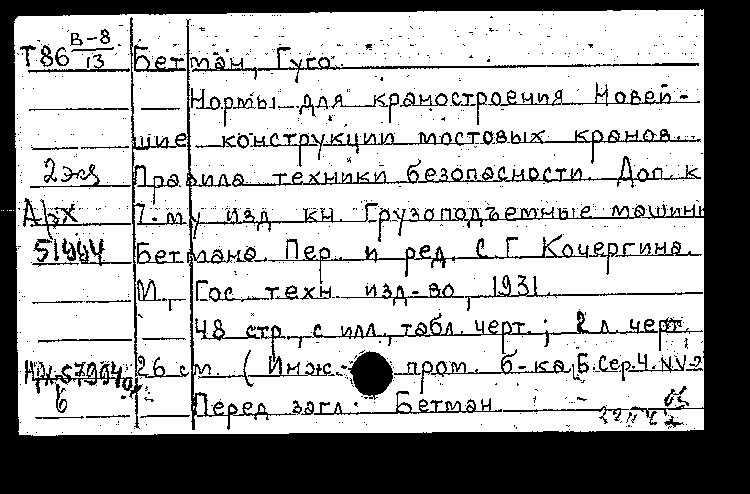 Т86 В-8/13 Бетман, Гуго.
Нормы для краностроения Новей-
шие конструкции мостовых кранов.
2 экз Правила техники безопасности. Доп. к
Арх 7-му изд кн. Грузоподъемные машины
51994 Бетмана. Пер. и ред. С.Г. Кочергина.
М., Гос. техн. изд-во, 1931.
48 стр., с илл., табл. черт.; 2 л. черт.
26 см. (Инж.- пром. б-ка, Б. Сер. 4. NV-2
6 Перед загл.: Бетман